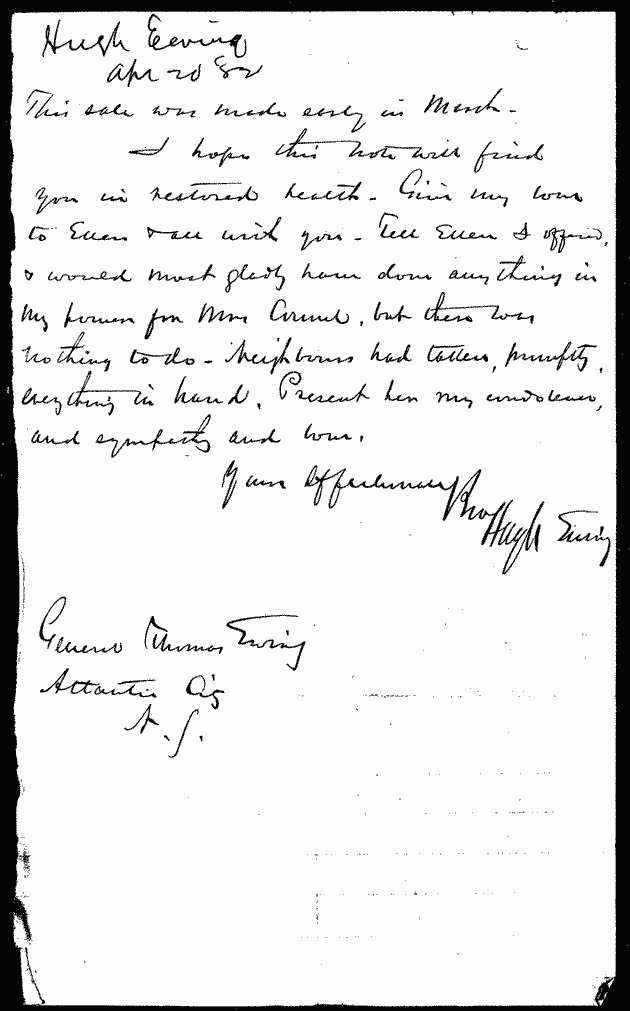 Hugh Ewing
Apr 20 82
This sale was made early in March -
I hope this note will find
you in restored health - Give my love
to Ellen & all with you - Tell Ellen I offered,
& would most gladly have done anything in
my power for Mrs, but there was
nothing to do - Neighbours had taken, promptly,
everything in hand. Present her my condolence,
and sympathy and love.
Your Affectionate Bro
Hugh Ewing
General Thomas Ewing
Atlantic City
N. J.